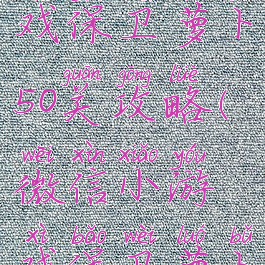 戏保卫萝卜
guān gōng lüè
50关攻略(
wēi xìn xiǎo yóu
微信小游
xì bǎo wèi luó
戏保卫萝卜